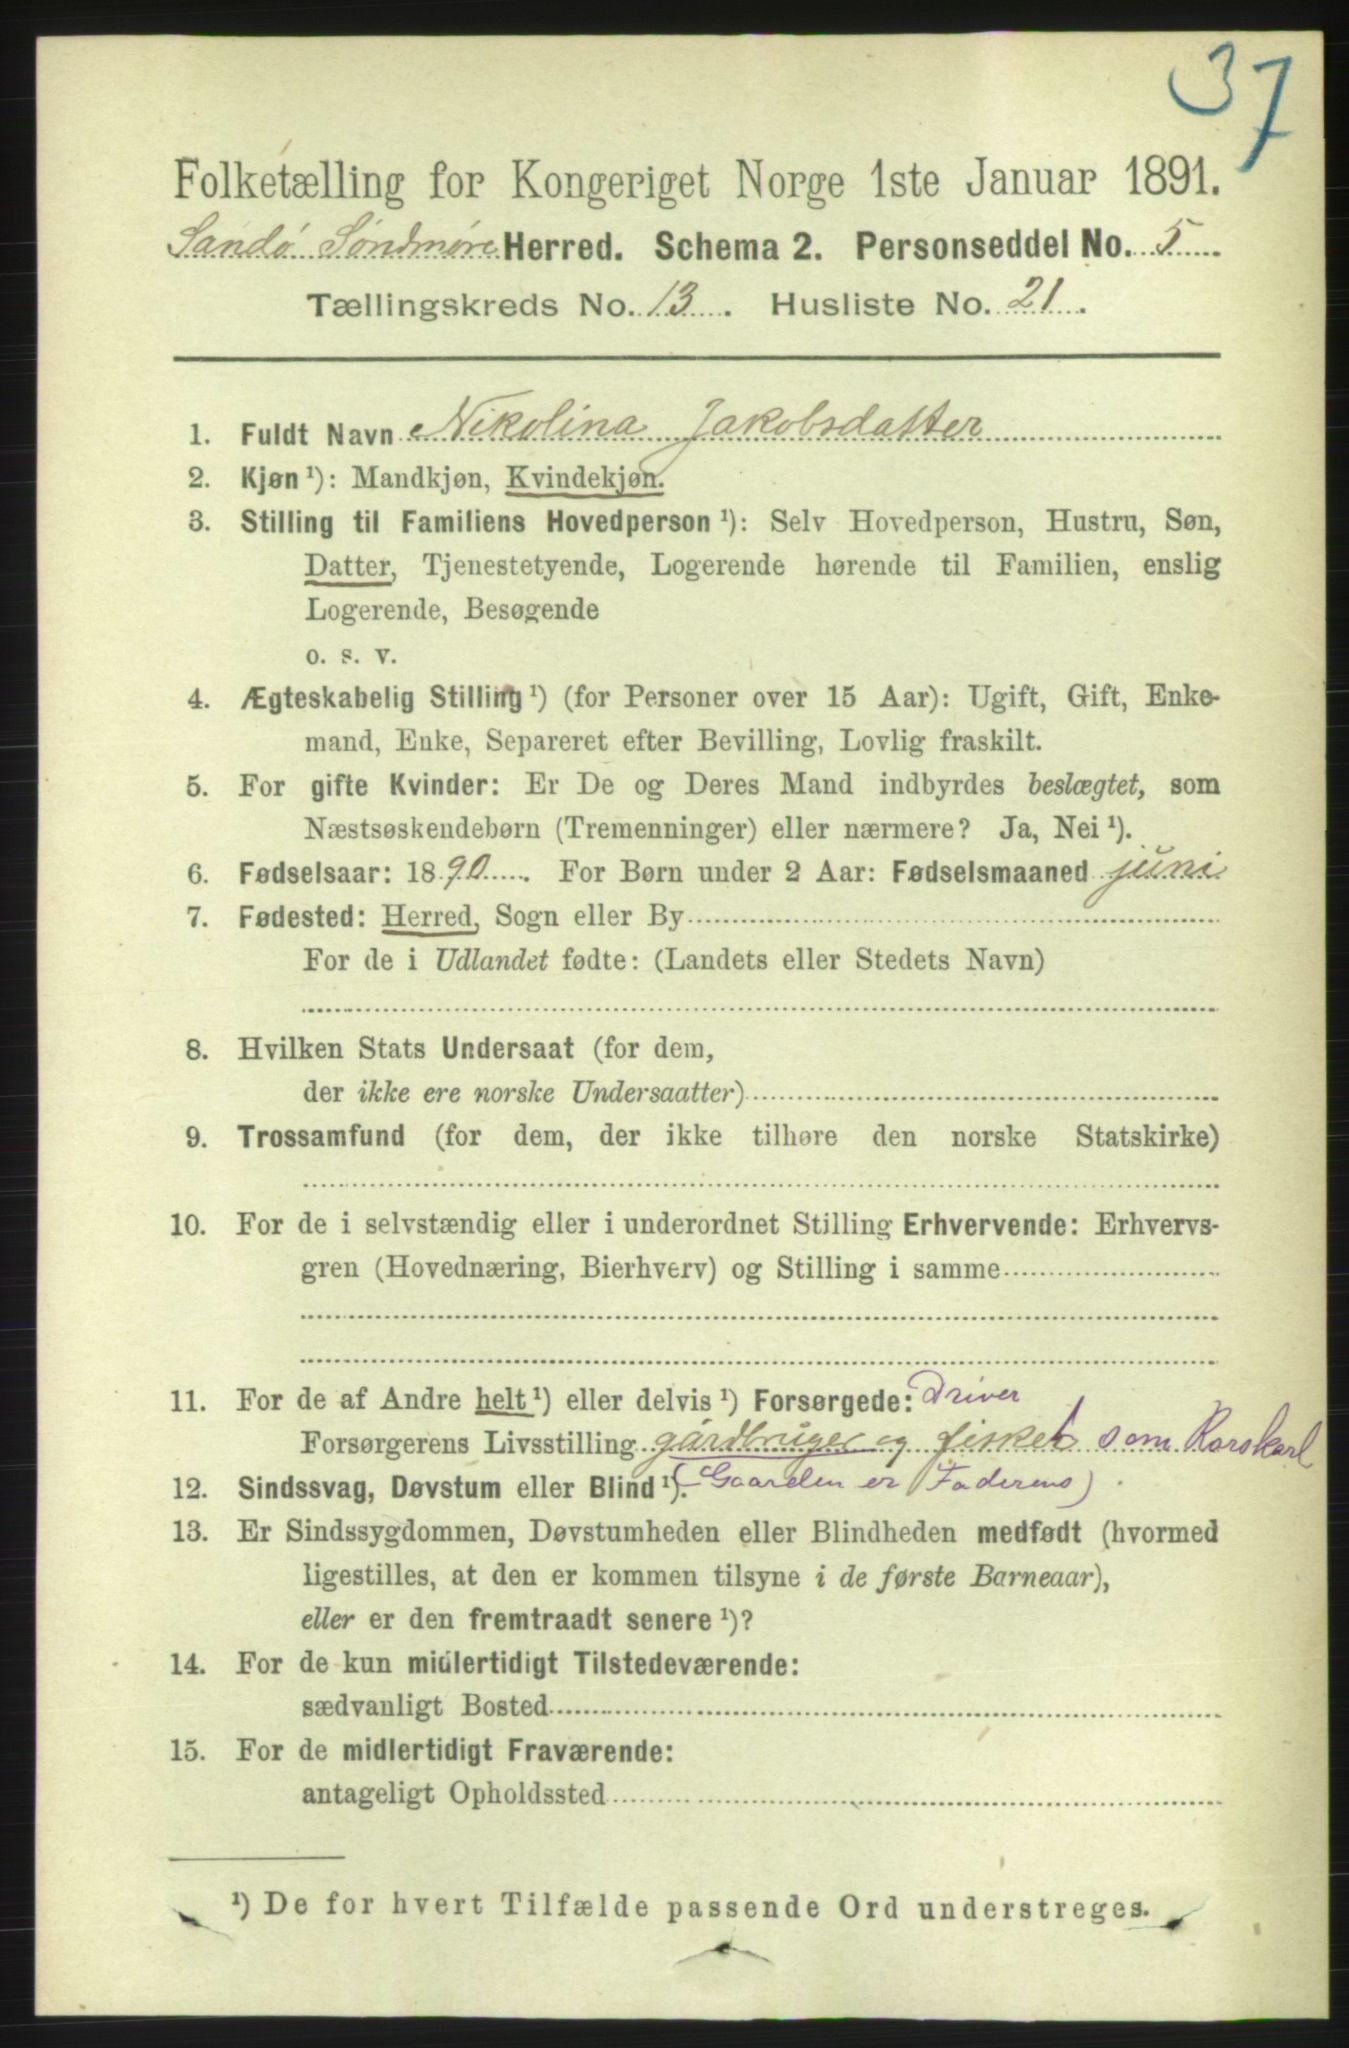 37
Folketælling for Kongeriget Norge 1ste Januar 1891.
Sandö Söndmöre Herred. Schema 2. Personseddel No. 5
Tællingskreds No. 13. Husliste No. 21.
1. Fuldt Navn Nikolina Jakobsdatter
2. Kjøn ¹): Mandkjøn, Kvindekjøn.
3. Stilling til Familiens Hovedperson ¹): Selv Hovedperson, Hustru, Søn,
Datter, Tjenestetyende, Logerende hørende til Familien, enslig
Logerende, Besøgende
o. s. v.
4. Ægteskabelig Stilling ¹) (for Personer over 15 Aar): Ugift, Gift, Enke-
mand, Enke, Separeret efter Bevilling, Lovlig fraskilt.
5. For gifte Kvinder: Er De og Deres Mand indbyrdes beslægtet, som
Næstsøskendebørn (Tremenninger) eller nærmere? Ja, Nei ¹).
6. Fødselsaar: 1890. For Børn under 2 Aar: Fødselsmaaned juni
7. Fødested: Herred, Sogn eller By
For de i Udlandet fødte: (Landets eller Stedets Navn)
8. Hvilken Stats Undersaat (for dem,
der ikke ere norske Undersaatter)
9. Trossamfund (for dem, der ikke tilhøre den norske Statskirke)
10. For de i selvstændig eller i underordnet Stilling Erhvervende: Erhvervs-
gren (Hovednæring, Bierhverv) og Stilling i samme
11. For de af Andre helt ¹) eller delvis ¹) Forsørgede: Driver
Forsørgerens Livsstilling gårdbruger og fisket som Rorskarl
12. Sindssvag, Døvstum eller Blind ¹). (Gaarden er Faderens)
13. Er Sindssygdommen, Døvstumheden eller Blindheden medfødt (hvormed
ligestilles, at den er kommen tilsyne i de første Barneaar),
eller er den fremtraadt senere ¹)?
14. For de kun midlertidigt Tilstedeværende:
sædvanligt Bosted
15. For de midlertidigt Fraværende:
antageligt Opholdssted
¹) De for hvert Tilfælde passende Ord understreges.